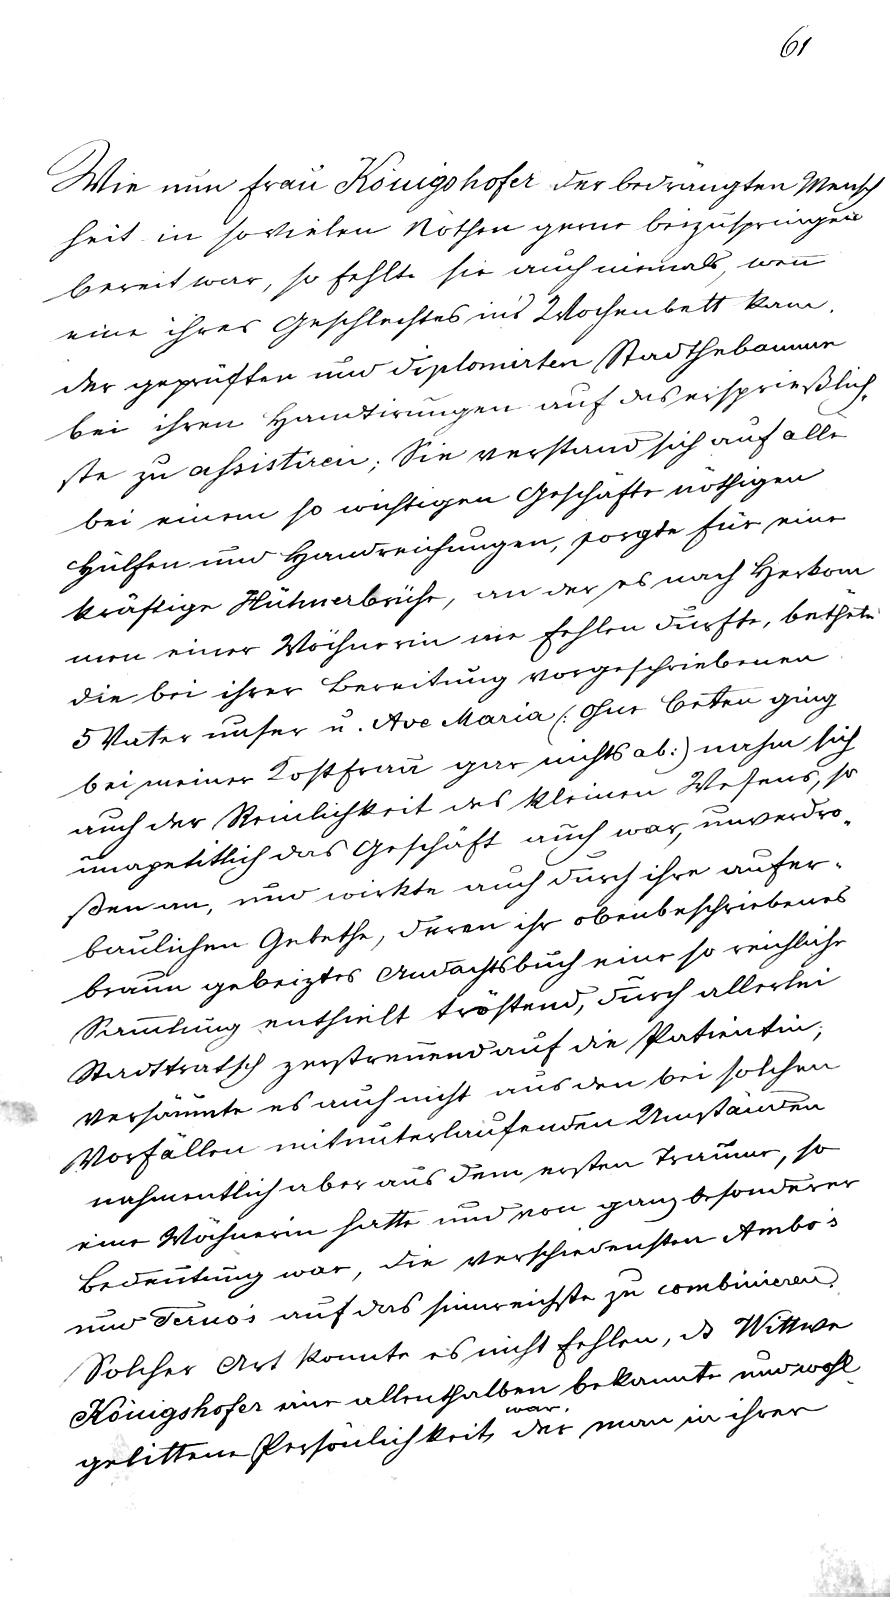 61
Wie nun Frau Königshofer der bedrängten Mensch
heit in sovielen Nöthen gerne beizuspringen
bereit war, so fehlte sie auch niemals, weñ
eine ihres Geschlechtes in's Wochenbett kam,
der geprüften und diplomirten Stadthebamme
bei ihren Handtirungen auf das ersprießlich,
ste zu assistiren; Sie verstand sich auf alle
bei einem so wichtigen Geschäfte nöthigen
Hülfen und Handreichungen, sorgte für eine
kräftige Hühnerbrühe, an der es nach Herkom
men einer Wöchnerin nie fehlen durfte, bethete
die bei ihrer Bereitung vorgeschriebenen
5 Vater unser u. Ave Maria (: ohne beten ging
bei meiner Kostfrau gar nichts ab:) nahm sich
auch der Reinlichkeit des kleinen Wesens, so
unapetitlich das Geschäft auch war, unverdro-
ßen an, und wirkte auch durch ihre aufer-
baulichen Gebethe, deren ihr obenbeschriebenes
braun gebeiztes Andachtsbuch eine so reichliche
Sam̃lung enthielt tröstend, durch allerlei
Stadttratsch zerstreuend auf die Patientin;
versäumte es auch nicht aus den bei solchen
Vorfällen mitunterlaufenden Umständen
nahmentlich aber aus dem ersten Traume, so
eine Wöchnerin hatte und von ganz besonderer
Bedeutung war, die verschiedensten Ambo's
und Terno's auf das sinnreichste zu combinieren.
Solcher Art konnte es nicht fehlen, dß Wittwe
Königshofer eine allenthalben bekannte und wohl
gelittene Persönlichkeit war, der man in ihrer